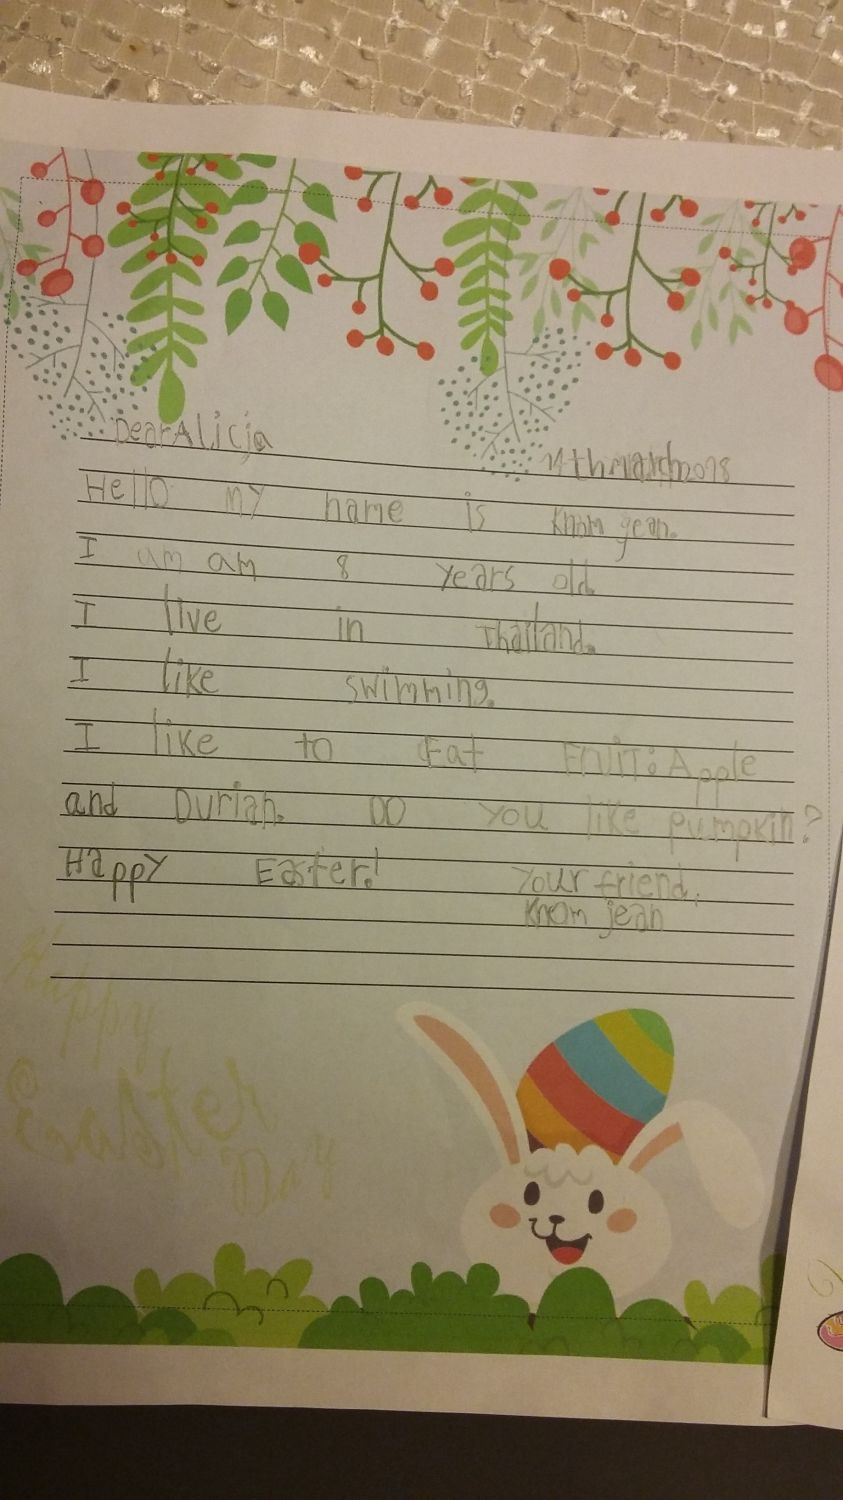 Dear Alicja
14th march 2018
Hello my name is Khom jean.
I am am 8 years old.
I live in Thailand.
I like swimming.
I like to Eat Fruit: Apple
and Durian. DO you like pumpkin?
Happy Easter! Your friend,
Khom jean
Happy
Easter
Day